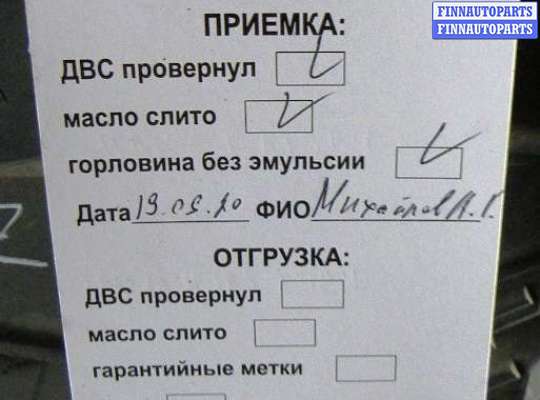 FINNAUTOPARTS
FINNAUTOPARTS
ПРИЕМКА:
ДВС провернул
масло слито
горловина без эмульсии
Дата 19.05.20 ФИО Михайлов А.Г.
ОТГРУЗКА:
ДВС провернул
масло слито
гарантийные метки